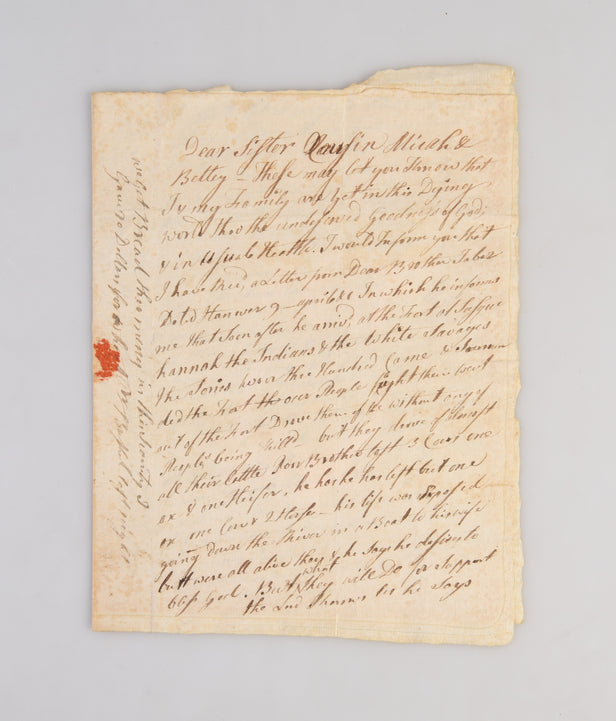 Dear Sister Cousin Micah &
Bettey – These may let you know that
I & my Family are yet in this Dying
world thro the undeserved goodness of God
& in Usuale Health. I would Inform you that
I have rec'd, a Letter from Dear Brother Jabez
Dated Hanover 9 – april In which he informs
me that Soon after he arriv'd, at the Fort at Susque
hannah the Indians & the White Savages
the Tories hover three Hundred Came & Surroun
ded the Fort over People fought them went
out of the Fort Drove them of the without any of
People being kill'd – but they drove of almost
all their Cattle Dear Brother lost 3 Cows one
ox & one Heifer, he has left but one
ox one Cow & 2 Horse – his life was exposed
going down the River in a Boat to his wife
butt were all alive they & he Says he desires to
bless God. But what they will Do for support
the Lord knows he Says
we get Bread this in this County I
Gave 20 Dollars for a Bushel last night